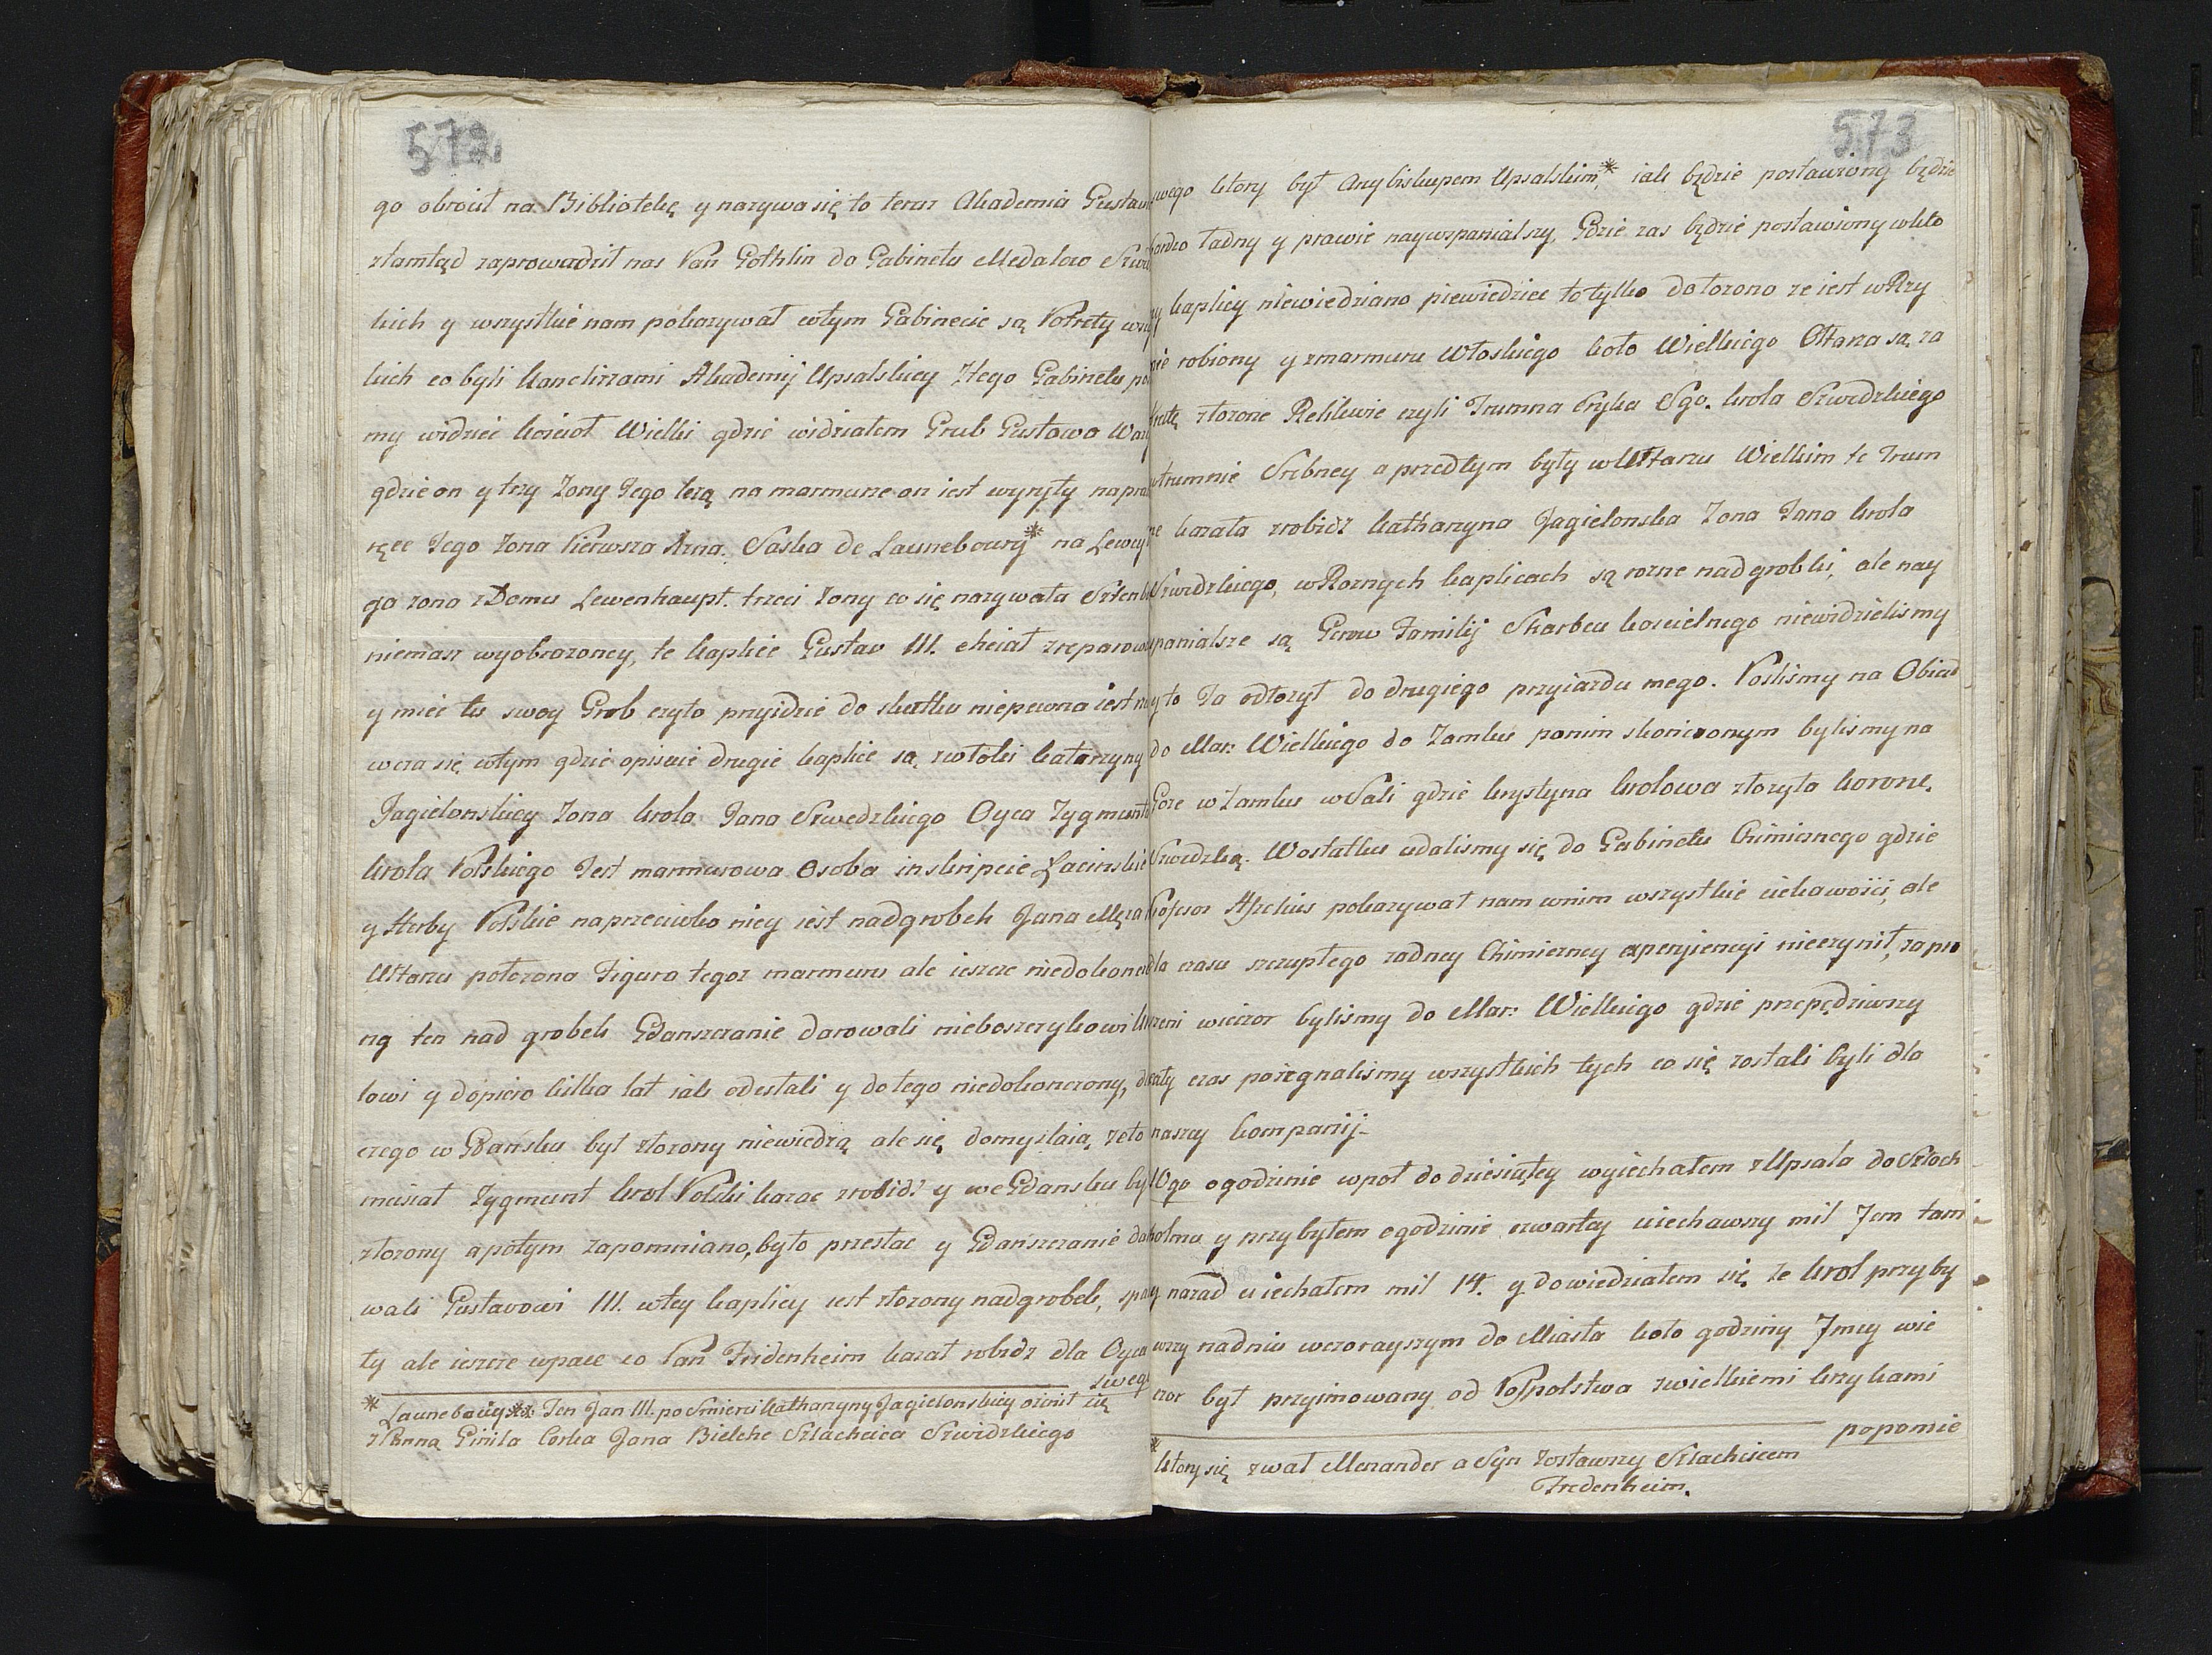 572
go obrocił na Bibliotekę y nazywa się to teraz Akademia Gustaw
ztamtęd zaprowadził nas Pan Gothlin do Gabinetu Medalow Szwe
kich y wszystkie nam pokazywał wtym Gabinecie są Potrety wszys
kich co byli Kanclirzami Akademij Upsalskiey Ztego Gabinetu po
my widziec kosciot Wielki gdzie widziałem Grub Gustawa Waz
gdzie on y trzy Zony Jego lezą na marmurze on iest wyryty na pra
ręce Jego zona Pierwsza Anna. Saska de Launebourg* na Lewey
go zona z Domu Lewenhaupt. trzeci Zony co się nazywała Sztenb
niemasz wyobrazoney, te kaplice Gustav III. chciał zreparow
y miec tu swoy Grob czyto przyidzie do skutku niepewna iest
wcza się wtym gdzie opisuie drugie kaplice są zwłoki katarzyny
Jagielonskiey Zona krola Jana Szwedzkiego Oyca Zygmunta
krola Polskiego Jest marmurowa Osoba inskripcie Łacinskie
y Herby Polskie naprzeciwko niey iest nadgrobek Jana Męza
Ułtarzu połozona Figura tegoz marmuru ale ieszcze niedokoncz
ny ten nad grobek Gdanszczanie darowali nieboszczykowi kro
lowi y dopiero kilka lat iak odesłali y do tego niedokonczony, dla
czego w Gdańsku był złozony niewiedzą ale się domyslaią, ze to
musiał Zygmunt krol Polski kazac zrobidz y we Gdansku był
złozony a potym zapomniano, było przesłac y Gdańszczanie daro
wali Gustavowi III. wtey kaplicy iest złozony nadgrobek, spania
ły ale ieszcze wpace co Pan Fridenheim kazał robidz dla Oyca
swego
* Launebourg ** Ten Jan III. po Smierci Katharzyny Jagielonskiey ozinił się
z Panną Ginila Corka Jana Bielche Szlachcica Szwidzkiego
573
swego ktory był Arcybiskupem Upsalskim,* iak będzie postawiony będzie
bardzo ładny y prawie naywspanialszy, Gdzie zas będzie postawiony wkto
ry kaplicy niewiedziano piewiedziec to tylko dołozono ze iest w Rzy
mie robiony y zmarmuru Włoskiego koło Wielkiego Ołtarza są za
kratę złozone Relikwie czyli Trumna Eryka Sgo. krola Szwedzkiego
w trumnie Srebney a przedtym były w Ułtarzu Wielkim te Trum
ne kazała zrobidz katharzyna Jagielonska Zona Jana krola
Szwedzkiego, w Roznych kaplicach są rozne nadgrobki, ale nay
spanialsze są Gerow Familij Skarbcu koscielnego niewidzielismy
y to Ja odłozył do drugiego przyiazdu mego. Poslismy na Obiad
do Mar: Wielkiego do Zamku ponim skonczonym bylismy na
Gorze w Zamku w Sali gdzie krystyna krolowa złozyła korone,
Szwedzką. Wostatku udalismy się do Gabinetu Chimicznego gdzie
Profesor Afzelius pokazywał nam wnim wszystkie ciekawości, ale
dla czasu szczupłego zadney Chimiczney experyiencyi nieczynił, zapro
szeni wieczor bylismy do Mar: Wielkiego gdzie przepędziwszy
cały czas pozegnalismy wszystkich tych co się zostali byli dla
naszey kompanij.
10go o godzinie wpoł do dziesiątey wyiechałem z Upsala do Sztoch
holmu y przybyłem o godzinie czwartey uiechawszy mil 7em tam
y nazad uiechałem mil 14. y dowiedziałem się ze krol przyby
wszy nadniu wczorayszym do Miasta koło godziny 7mey wie
czor był przyimowany od Pospolstwa zwielkiemi krzykami
popomie
* ktory się zwał Menander a Syn zostawszy Szlachcicem
Fredenheim.